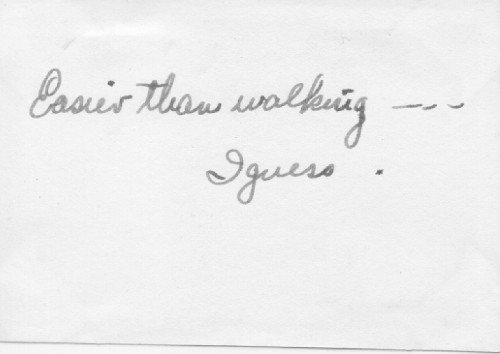 Easier than walking ---
I guess .